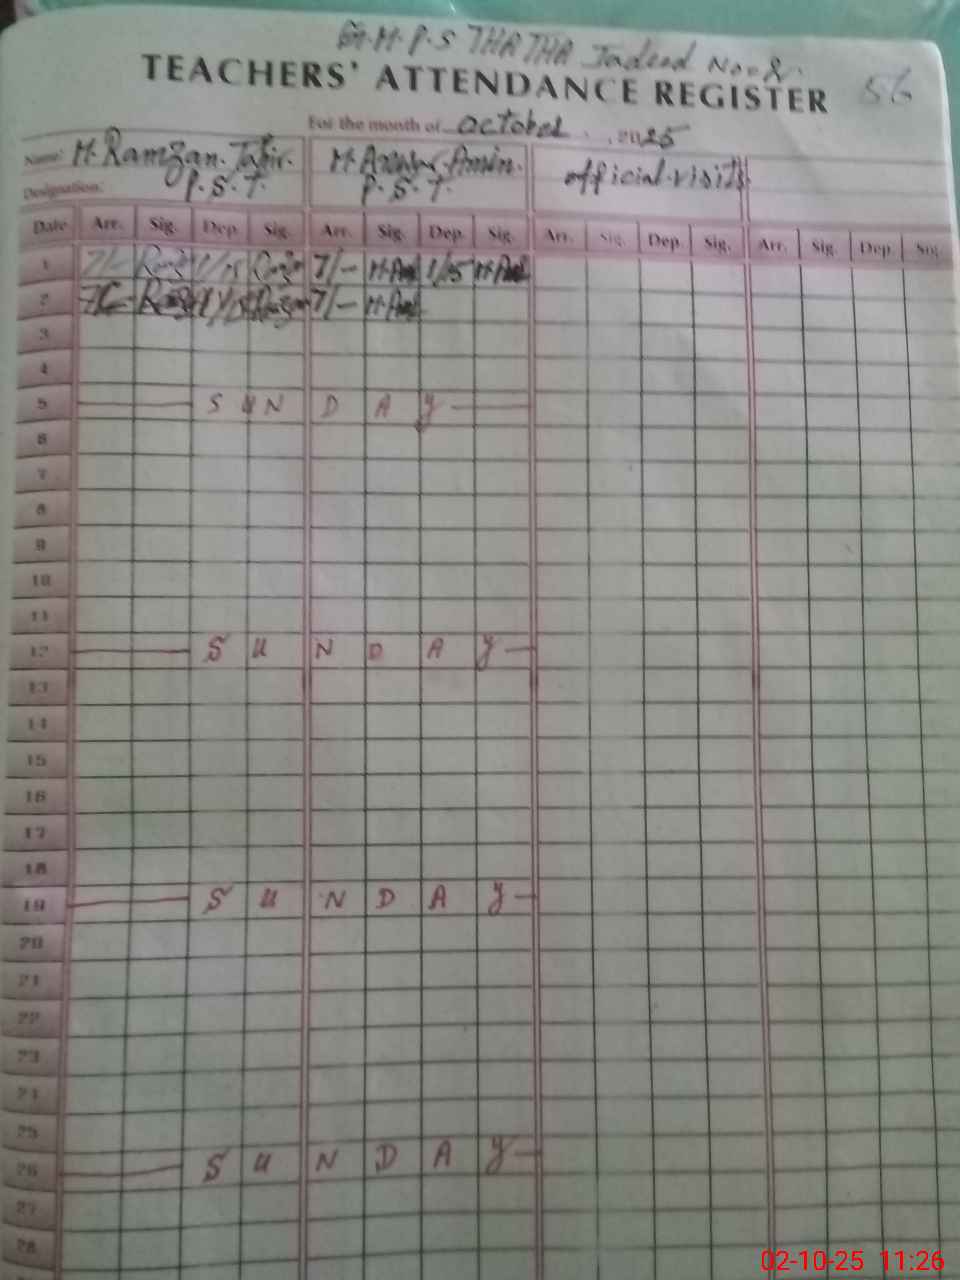 G.M.P.S THATHA Jadeed No=2.
TEACHERS' ATTENDANCE REGISTER 56
For the month of October 2025
Name: M.Ramzan.Tahir. M.Anwar.Amin. official.visits
Designation: P.S.T. P.S.T.
Date Arr. Sig. Dep. Sig. Arr. Sig. Dep. Sig. Arr. Sig. Dep. Sig. Arr. Sig. Dep. Sig.
1 7/- 1/15 7/- 1/15
2 7/-
3
4
5 SUNDAY
6
7
8
9
10
11
12 SUNDAY
13
14
15
16
17
18
19 SUNDAY
20
21
22
23
24
25
26 SUNDAY
27
28
02-10-25 11:26